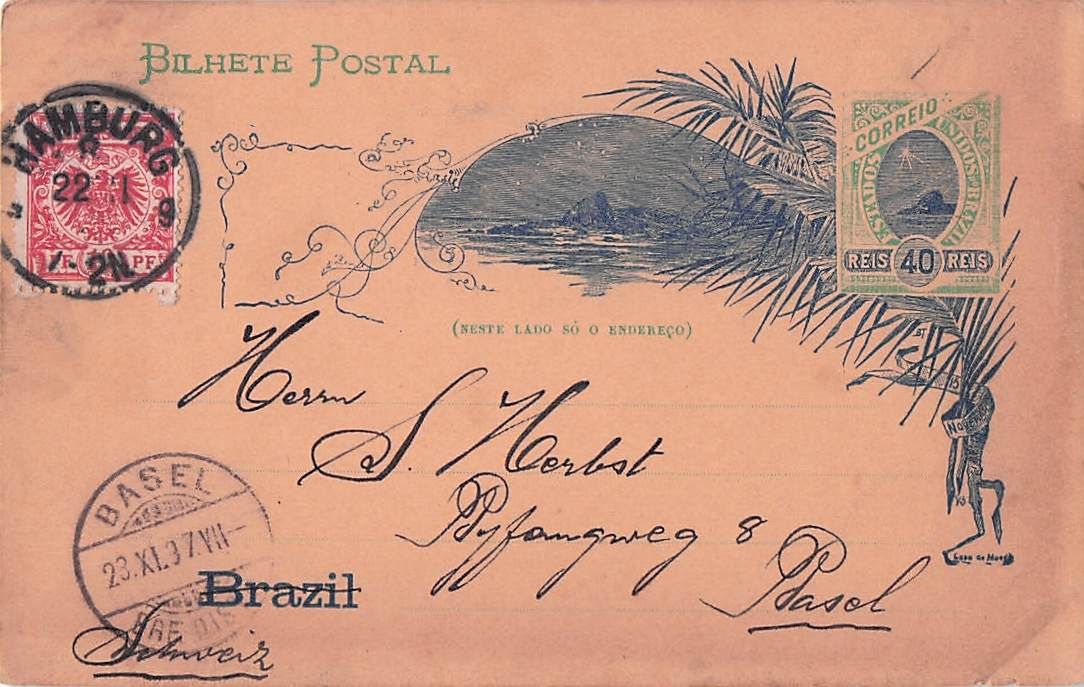 BILHETE POSTAL
HAMBURG
22
PF
CORREIO
ESTADOS UNIDOS BRAZIL
REIS 40 REIS
(NESTE LADO SÓ O ENDEREÇO)
Herrn
S. Herbst
Byfangweg 8
Basel
BASEL
23.XI.97.VII-
Brazil
Schweiz
15
Casa da Moeda